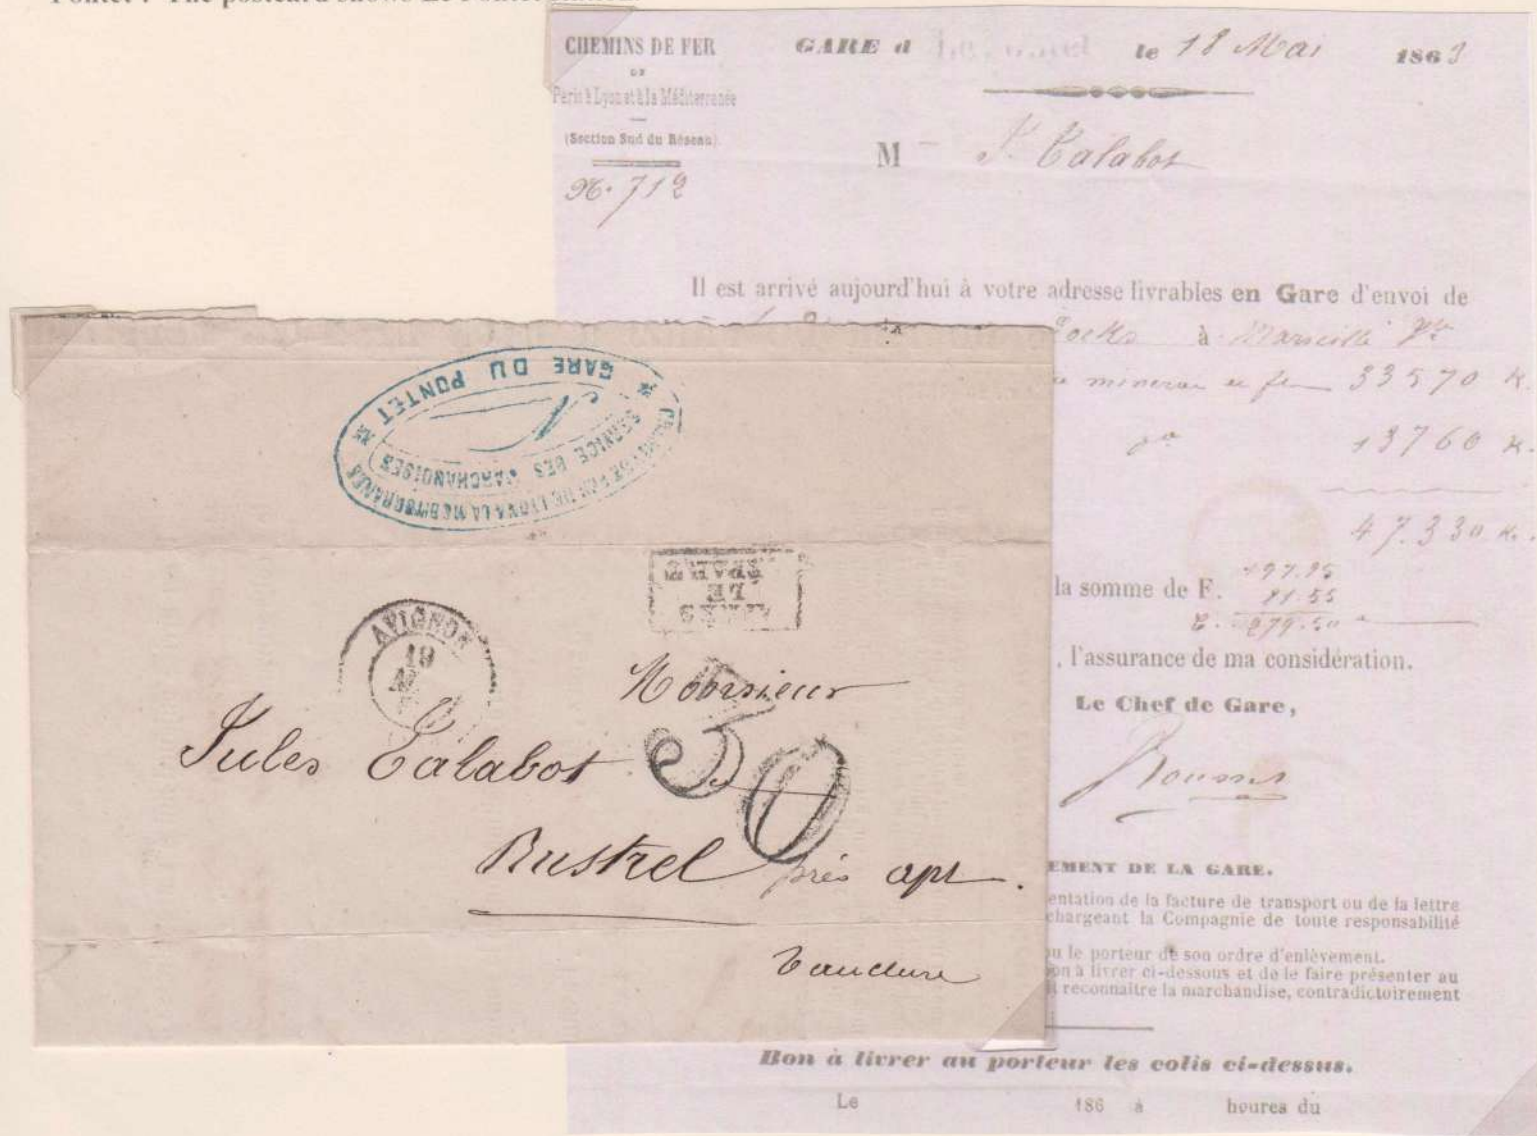 CHEMINS DE FER
DE
Paris à Lyon et à la Méditerranée
(Section Sud du Réseau)
N. 712
GARE d le 18 Mai 1863
M J. Talabot
Il est arrivé aujourd'hui à votre adresse livrables en Gare d'envoi de
Docks à Marseille
minerai de fer 33570 K.
do 13760 K.
47.330 K.
la somme de F. 197.95
81.55
279.50
, l'assurance de ma considération.
Le Chef de Gare,
EMENT DE LA GARE.
entation de la facture de transport ou de la lettre
chargeant la Compagnie de toute responsabilité
u le porteur de son ordre d'enlèvement.
on à livrer ci-dessous et de le faire présenter au
t reconnaitre la marchandise, contradictoirement
Bon à livrer au porteur les colis ci-dessus.
Le 186 à heures du
CHEMINS DE FER DE LYON A LA MEDITERRANEE
SERVICE DES MARCHANDISES
GARE DU PONTET
APRES
LE
DEPART
AVIGNON
19
30
Monsieur
Jules Talabot
Rustrel près apt.
Vaucluse